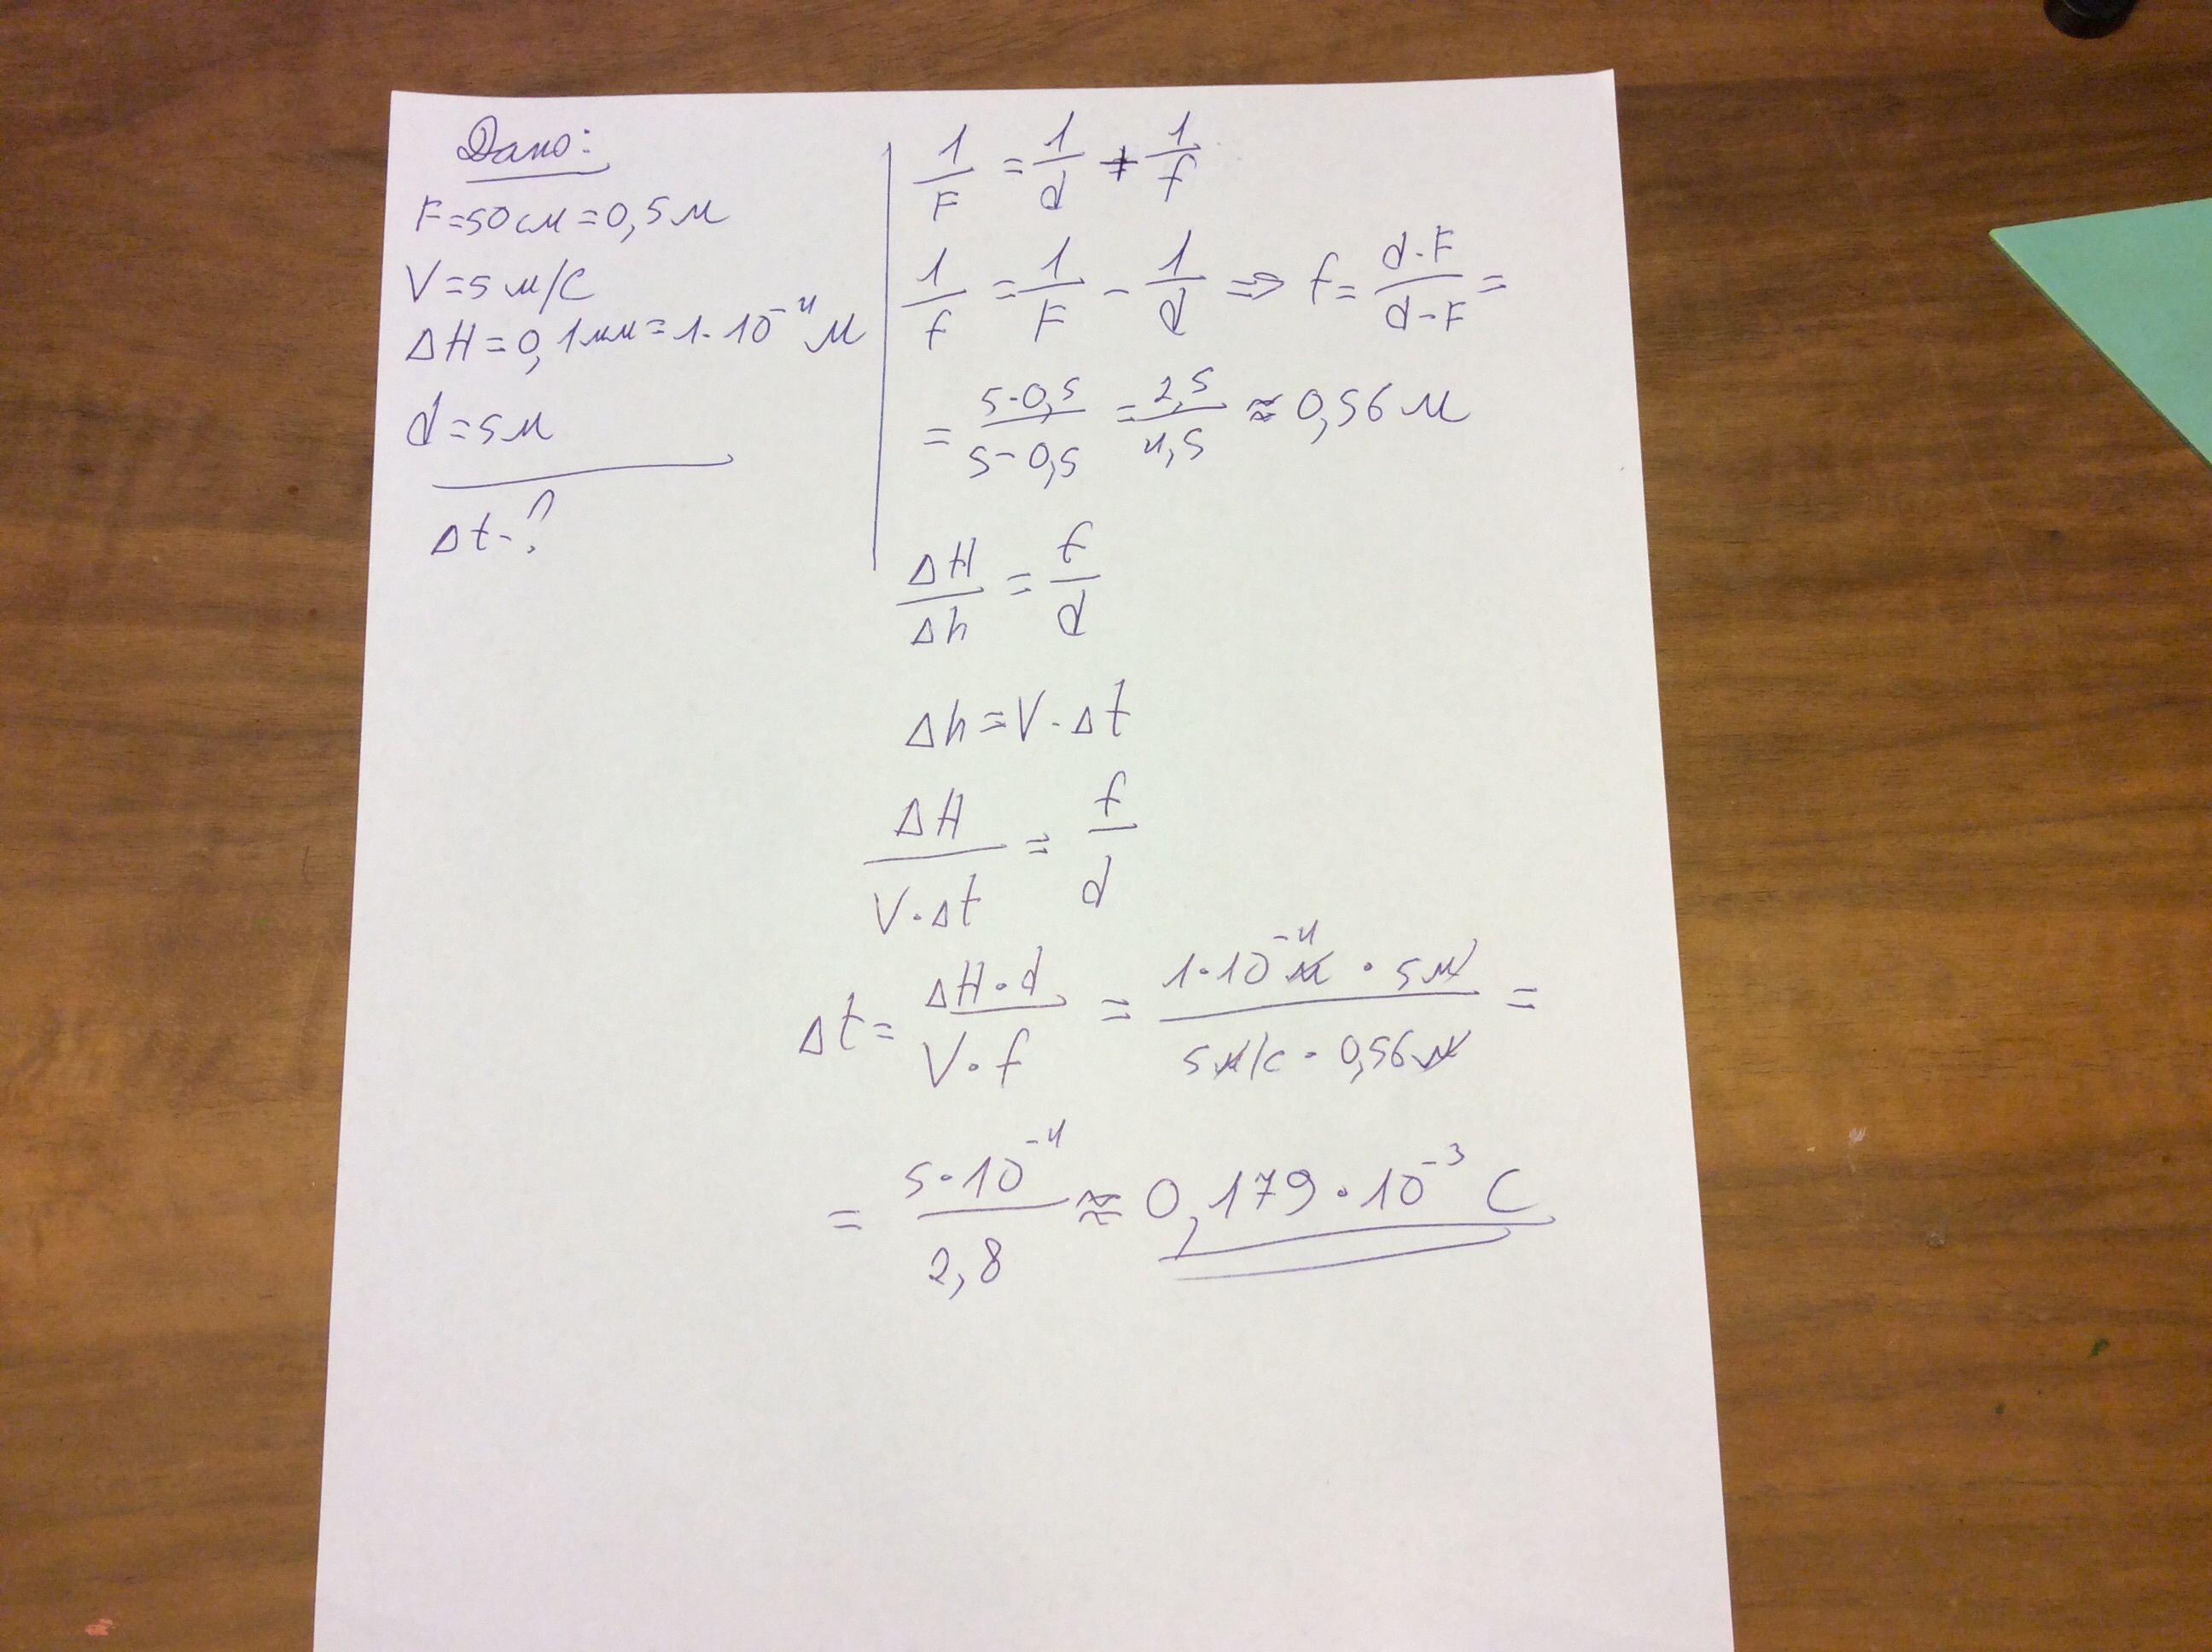 Дано:
F=50см=0,5м
V=5 м/с
ΔH=0,1мм=1·10⁻⁴м
d=5м
Δt-?
1/F = 1/d + 1/f
1/f = 1/F - 1/d ⇒ f= d·F/d-F =
= 5·0,5/5-0,5 = 2,5/4,5 ≈ 0,56 м
ΔH/Δh = f/d
Δh=V·Δt
ΔH/V·Δt = f/d
Δt= ΔH·d/V·f = 1·10⁻⁴м · 5м/5м/с · 0,56м =
= 5·10⁻⁴/2,8 ≈ 0,179·10⁻³ с